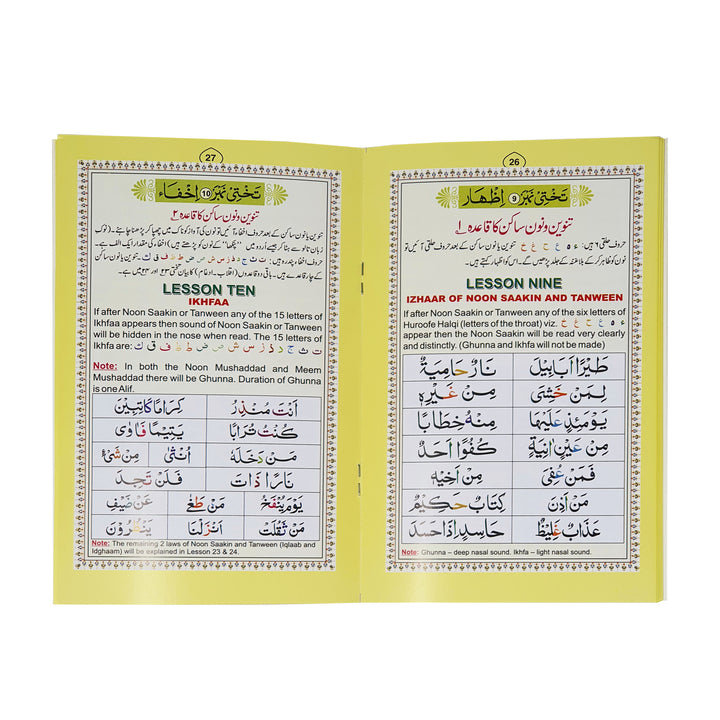 26
تختی نمبر 9 اظهار
تنوین و نون ساکن کا قاعدہ ۱
حروف حلقی ٦ ہیں: ء ہ ع ح غ خ تنوین یا نون ساکن کے بعد حروف حلقی آئیں تو
نون کو ظاہر کر کے بلا غنہ کے جلد پڑھیں گے۔ اس کو اظہار کہتے ہیں۔
LESSON NINE
IZHAAR OF NOON SAAKIN AND TANWEEN
If after Noon Saakin or Tanween any of the six letters of
Huroofe Halqi (letters of the throat) viz. ء ہ ع ح غ خ
appear then the Noon Saakin will be read very clearly
and distinctly. (Ghunna and Ikhfa will not be made)
طَيْرًا اَبَابِيْلَ نَارٌ حَامِيَةٌ
لِمَنْ خَشِيَ مِنْ غَيْرِهٖ
يَوْمَئِذٍ عَلَيْهَا مِنْهُ خِطَابًا
مِنْ عَيْنٍ اٰنِيَةٍ كُفُوًا اَحَدٌ
فَمَنْ عُفِيَ مِنْ اَخِيْهِ
مَنْ اَذِنَ كِتَابٌ حَكِيْمٌ
عَذَابٌ غَلِيْظٌ حَاسِدٍ اِذَا حَسَدَ
Note: Ghunna – deep nasal sound. Ikhfa – light nasal sound.
27
تختی نمبر 10 اخفاء
تنوین و نون ساکن کا قاعدہ ۲
LESSON TEN
IKHFAA
If after Noon Saakin or Tanween any of the 15 letters of
Ikhfaa appears then sound of Noon Saakin or Tanween
will be hidden in the nose when read. The 15 letters of
Ikhfa are: ت ث ج د ذ ز س ش ص ض ط ظ ف ق ك
Note: In both the Noon Mushaddad and Meem
Mushaddad there will be Ghunna. Duration of Ghunna
is one Alif.
اَنْتَ مُنْذِرُ كِرَامًا كَاتِبِيْنَ
كُنْتُ تُرَابًا يَتِيْمًا فَاٰوٰى
مَنْ دَخَلَهٗ اُنْثٰى مِنْ شَيْءٍ
نَارًا ذَاتَ فَلَنْ تَجِدَ
يَوْمَ يُنْفَخُ مَنْ طَغٰى عَنْ ضَيْفِ
مَنْ ثَقُلَتْ اَنْزَلْنَا يَنْظُرُوْنَ
Note: The remaining 2 laws of Noon Saakin and Tanween (Iqlaab and
Idghaam) will be explained in Lesson 23 & 24.